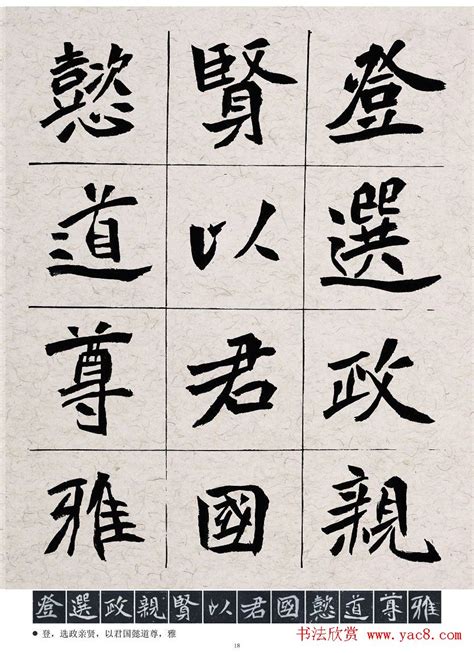 登選政親
賢以君國
懿道尊雅
登選政親賢以君國懿道尊雅
● 登，选政亲贤，以君国懿道尊，雅
18
书法欣赏
www.yac8.com